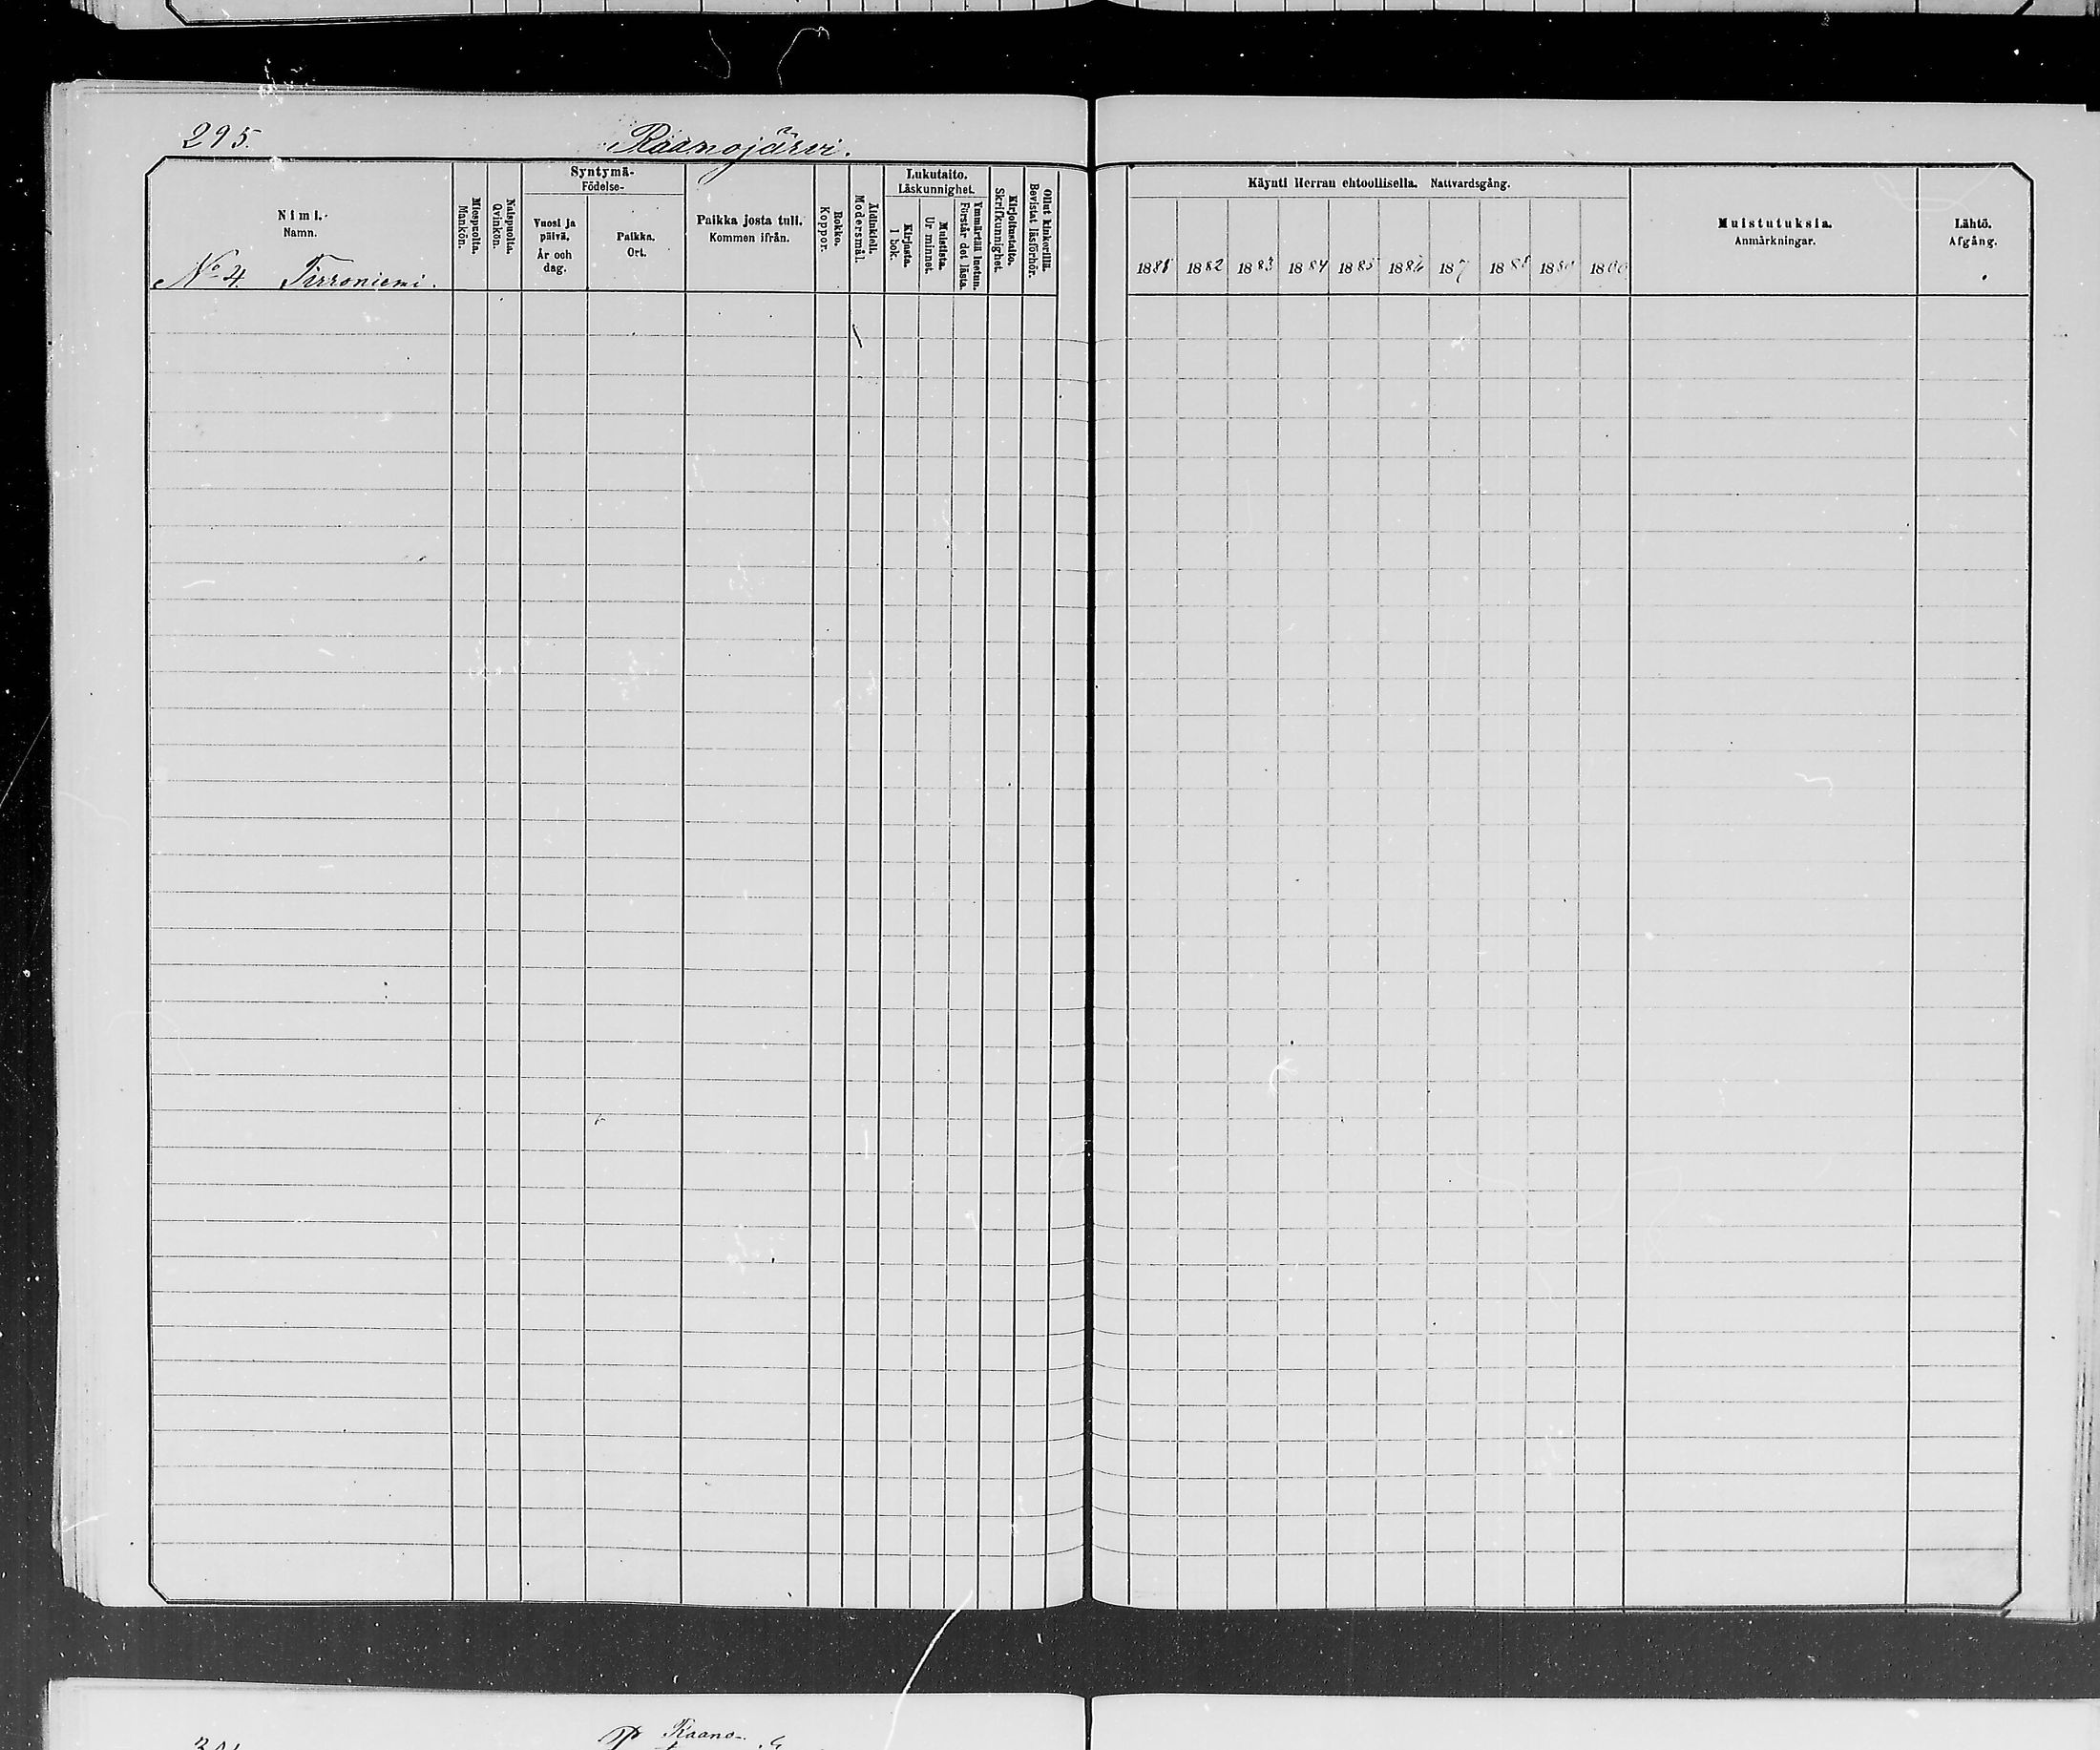 295.
Raanojärvi.
Nimi.
Namn.
Miespuolta.
Mankön.
Naispuolta.
Qvinkön.
Syntymä-
Födelse-
Vuosi ja
päivä.
År och
dag.
Paikka.
Ort.
Paikka josta tuli.
Kommen ifrån.
Rokko.
Koppor.
Äidinkieli.
Modersmål.
Lukutaito.
Läskunnighet.
Kirjasta.
I bok.
Muistista.
Ur minnet.
Ymmärtää luetun.
Förstår det lästa.
Kirjoitustaito.
Skrifkunnighet.
Ollut kinkerillä.
Bevistat läsförhör.
Käynti Herran ehtoollisella. Nattvardsgång.
1881 1882 1883 1884 1885 1886 187 1888 1889
Muistutuksia.
Anmärkningar.
Lähtö.
Afgång.
No 4. Tirroniemi.
Raano-